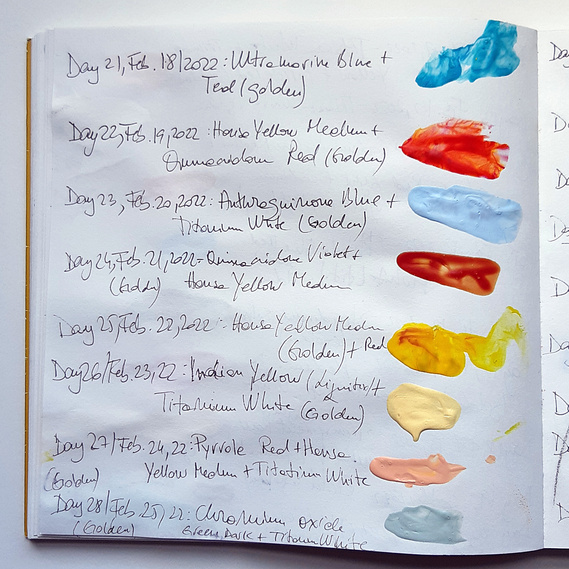 Day 21, Feb. 18/2022: Ultramarine Blue +
Teal (golden)
Day 22, Feb. 19, 2022: Hansa Yellow Medium +
Quinacridone Red (Golden)
Day 23, Feb. 20, 2022: Anthraquinone Blue +
Titanium White (Golden)
Day 24, Feb. 21, 2022 - Quinacridone Violet +
(Golden) Hansa Yellow Medium
Day 25, Feb. 22, 2022: Hansa Yellow Medium
(Golden) + Red
Day 26/Feb. 23, 22: Indian Yellow (Liquitex) +
Titanium White (Golden)
Day 27/Feb. 24, 22: Pyrrole Red + Hansa
(Golden) Yellow Medium + Titanium White
Day 28/Feb. 25, 22: Chromium oxide
(Golden) Green Dark + Titanium White